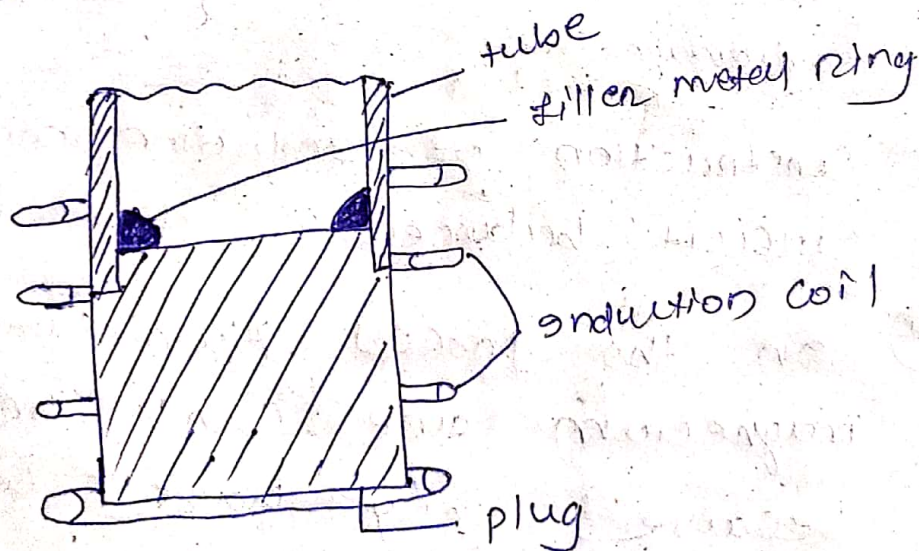 tube
filler metal ring
induction coil
plug